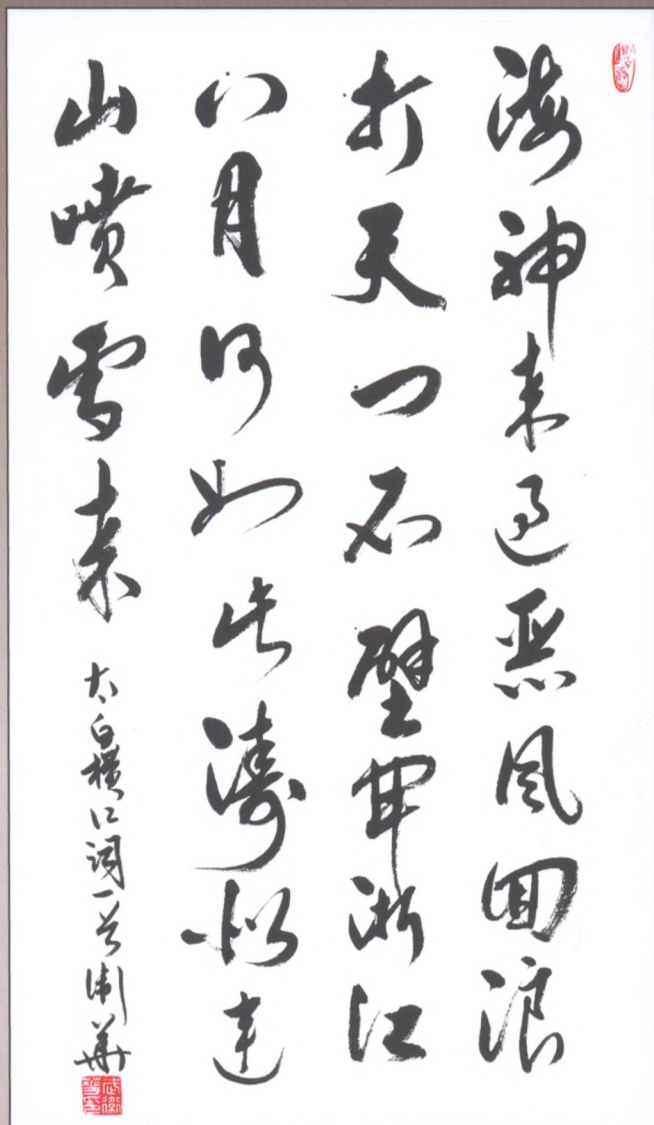 海神來過惡風回浪
打天門石壁開浙江
八月何如此濤似連
山噴雪來
太白橫江詞一首衛華